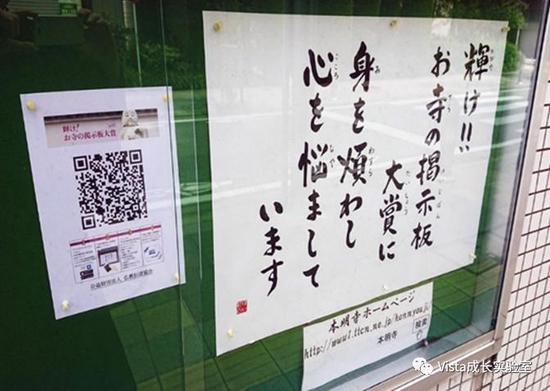 輝け!!
お寺の掲示板
大賞に
身を煩わし
心を悩まして
います
輝け!
お寺の掲示板大賞
公益財団法人 仏教伝道協会
本明寺ホームページ
本明寺
検索
Vista成长实验室